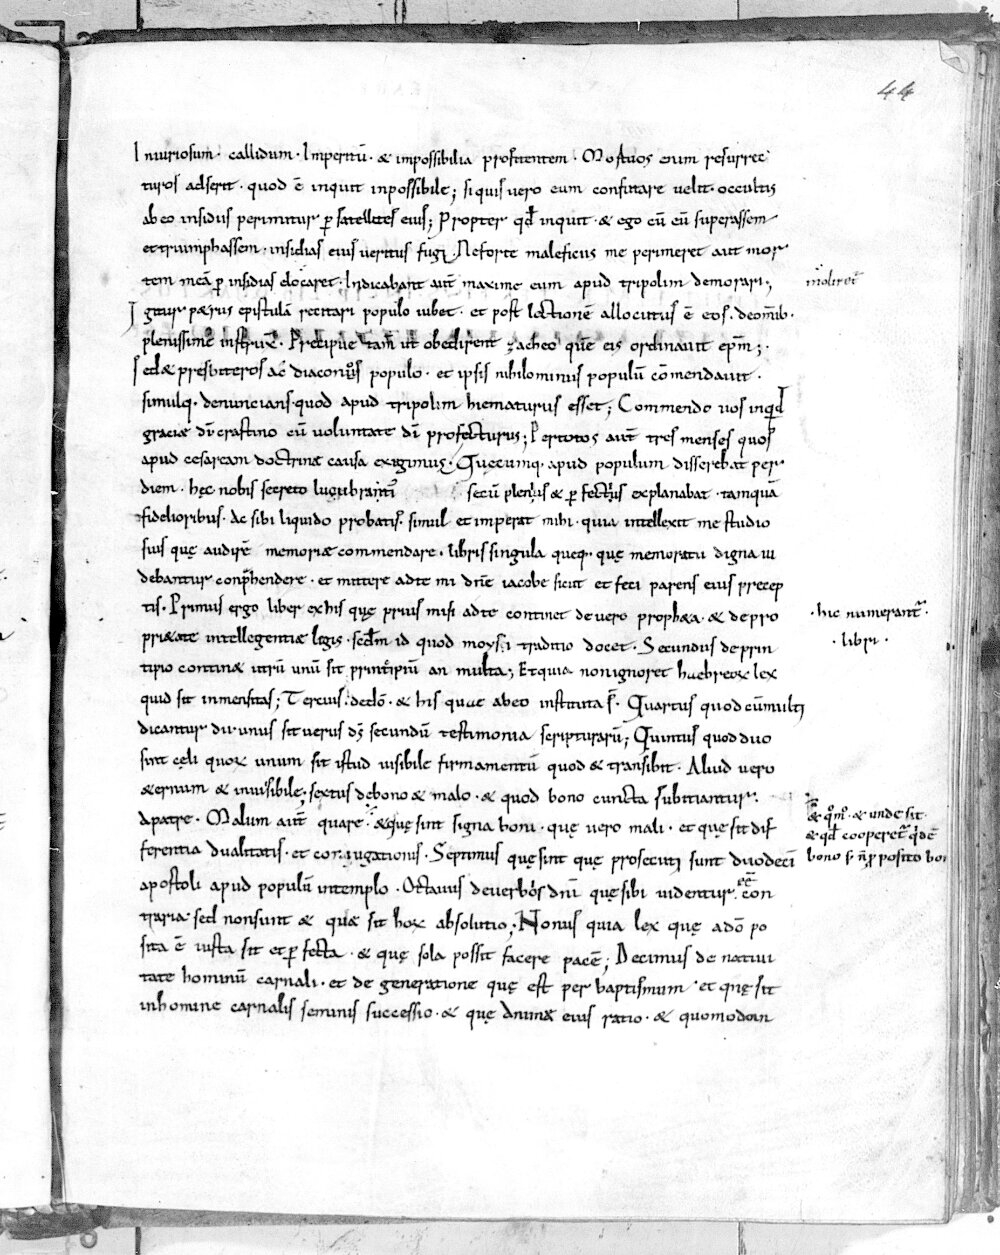 44
Iniuriosum · callidum · Imperitū · & impossibilia profitentem · Mortuos enim resurrec
turos adserit · quod ē inquit inpossibile; si quis vero eum confutare velit · occultis
ab eo insidiis perimitur p satellites eius; Propter qđ inquit · & ego cū eū superassem
et triumphassem · insidias eius veritus fugi, Ne forte maleficus me perimeret aut mor
tem meā p insidias elocaret · Indicabant aut̄ maxime eum apud tripolim demorari;
moliret̄
Igitur petrus epistulā recitari populo iubet · et post lectionē allocutus ē eos · de omīb ·
plenissime instrux̄ · Precipue tam̄ ut obedirent zacheo quē eis ordinauit ep̄m; ·
Sed & presbiteros ac diaconos populo · et ipsis nihilominus populū cōmendauit ·
simulq · denuncians quod apud tripolim hiematurus esset; Commendo uos inqđ
gratiæ dī crastino cū voluntate dī profecturus; Per totos aut̄ tres menses quos
apud cesaream doctrinæ causa exegimus · Quęcumq · apud populum disserebat per
diem · hęc nobis secreto lucubrantī secū plenius & p fectius explanabat · tamquā
fidelioribus · ac sibi liquido probatis · simul et imperat mihi · quia intellexit me studio
sius quę audirē memoriæ commendare · libris singula queq · quę memoratu digna ui
debantur conp̄hendere · et mittere ad te mi dn̄e iacobe sicut et feci parens eius precep
tis · Primus ergo liber ex his quę prius misi ad te continet de vero propheta · & de pro
· hic numerant̄ ·
prietate intellegentiæ legis · scđm id quod moysi traditio docet · Secundus de prin
· libri ·
cipio continet utrū unū sit principiū an multa; Et quia non ignoret hæbreoꝝ lex
quid sit inmensitas; Tertius · de dō · & his quae ab eo instituta s̄ · Quartus quod cū multi
dicantur dii · unus sit verus ds̄ secundū testimonia scripturarū; Quintus quod duo
sint cęli quoꝝ unum sit istud visibile firmamentū quod & transibit · Aliud vero
æternum & invisibile; sextus de bono & malo · & quod bono cuncta subitiantur ·
a patre · Malum aut̄ quare · & quę sint signa boni · quę vero mali · et quę sit dif
& qm̄o · & unde sit ·
& qđ cooperet̄ qdē
ferentia dualitatis · et coniugationis · Septimus quę sint quę prosecuti sunt duodeci
bono s n̄ p posito bon
apostoli apud populū in templo · Octavus de verbis dnī quę sibi videntur eē con
traria sed non sunt & quæ sit hoꝝ absolutio; Nonus quia lex quę a dō po
sita ē iusta sit et p fecta · & quę sola possit facere pacē; Decimus de nativi
tate hominū carnali · et de generatione quę est per baptismum · et quę sit
in homine carnalis seminis successio · & quę animæ eius ratio · & quomodo in